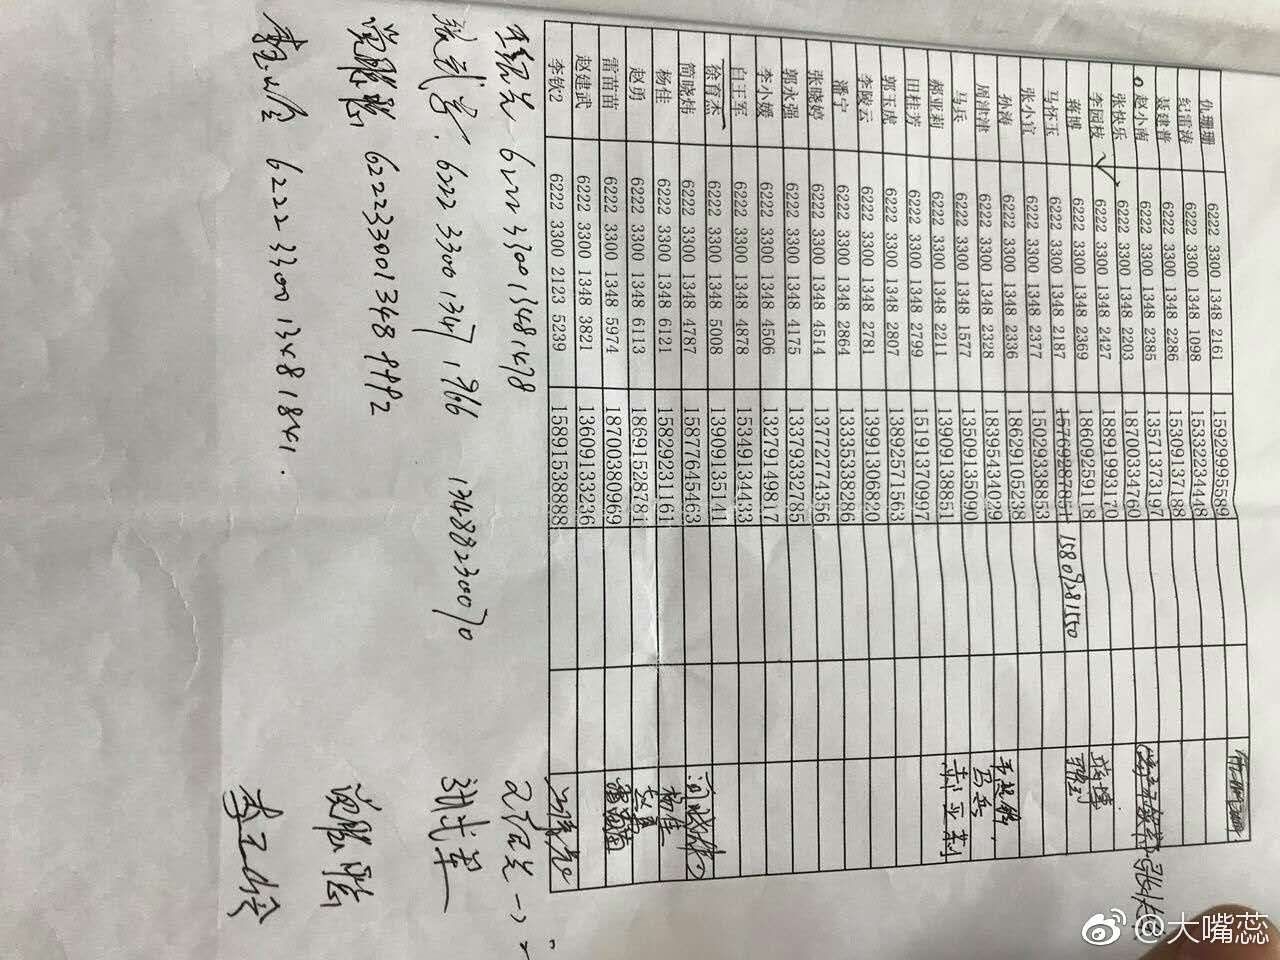 仇珊珊 6222 3300 1348 2161 15929995589
纪雷涛 6222 3300 1348 1098 15332234448
聂建普 6222 3300 1348 2286 15309137188
赵小南 6222 3300 1348 2385 13571373197
张快乐 6222 3300 1348 2203 18700334760
李园枝 6222 3300 1348 2427 18891993170
蒋博 6222 3300 1348 2369 18609259118 蒋博
马怀玉 6222 3300 1348 2187 15769287851 15809281550
张小宜 6222 3300 1348 2377 15029338853
孙涛 6222 3300 1348 2336 18629105238
周津津 6222 3300 1348 2328 18395434029
马兵 6222 3300 1348 1577 13509135090 马兵
郝亚莉 6222 3300 1348 2211 13909138851 郝亚莉
田桂芳 6222 3300 1348 2799 15191370997
郭玉虎 6222 3300 1348 2807 13892571563
李陵云 6222 3300 1348 2781 13991306820
潘宁 6222 3300 1348 2864 13335338286
张晓婷 6222 3300 1348 4514 13772774356
郭永强 6222 3300 1348 4175 13379332785
李小媛 6222 3300 1348 4506 13279149817
白王军 6222 3300 1348 4878 15349134433
徐育杰 6222 3300 1348 5008 13909135141
简晓炜 6222 3300 1348 4787 15877645463 简晓炜
杨佳 6222 3300 1348 6121 15829231161 杨佳
赵勇 6222 3300 1348 6113 18691528781 赵勇
雷苗苗 6222 3300 1348 5974 18700380969 雷苗苗
赵建武 6222 3300 1348 3821 13609133236
李钦2 6222 3300 2123 5239 15891538888
6222 3300 1348 1478
张武军 6222 3300 1347 1966 13488230070 张武军
6222 3300 1348 9992
6222 3300 1348 1841
@大嘴蕊